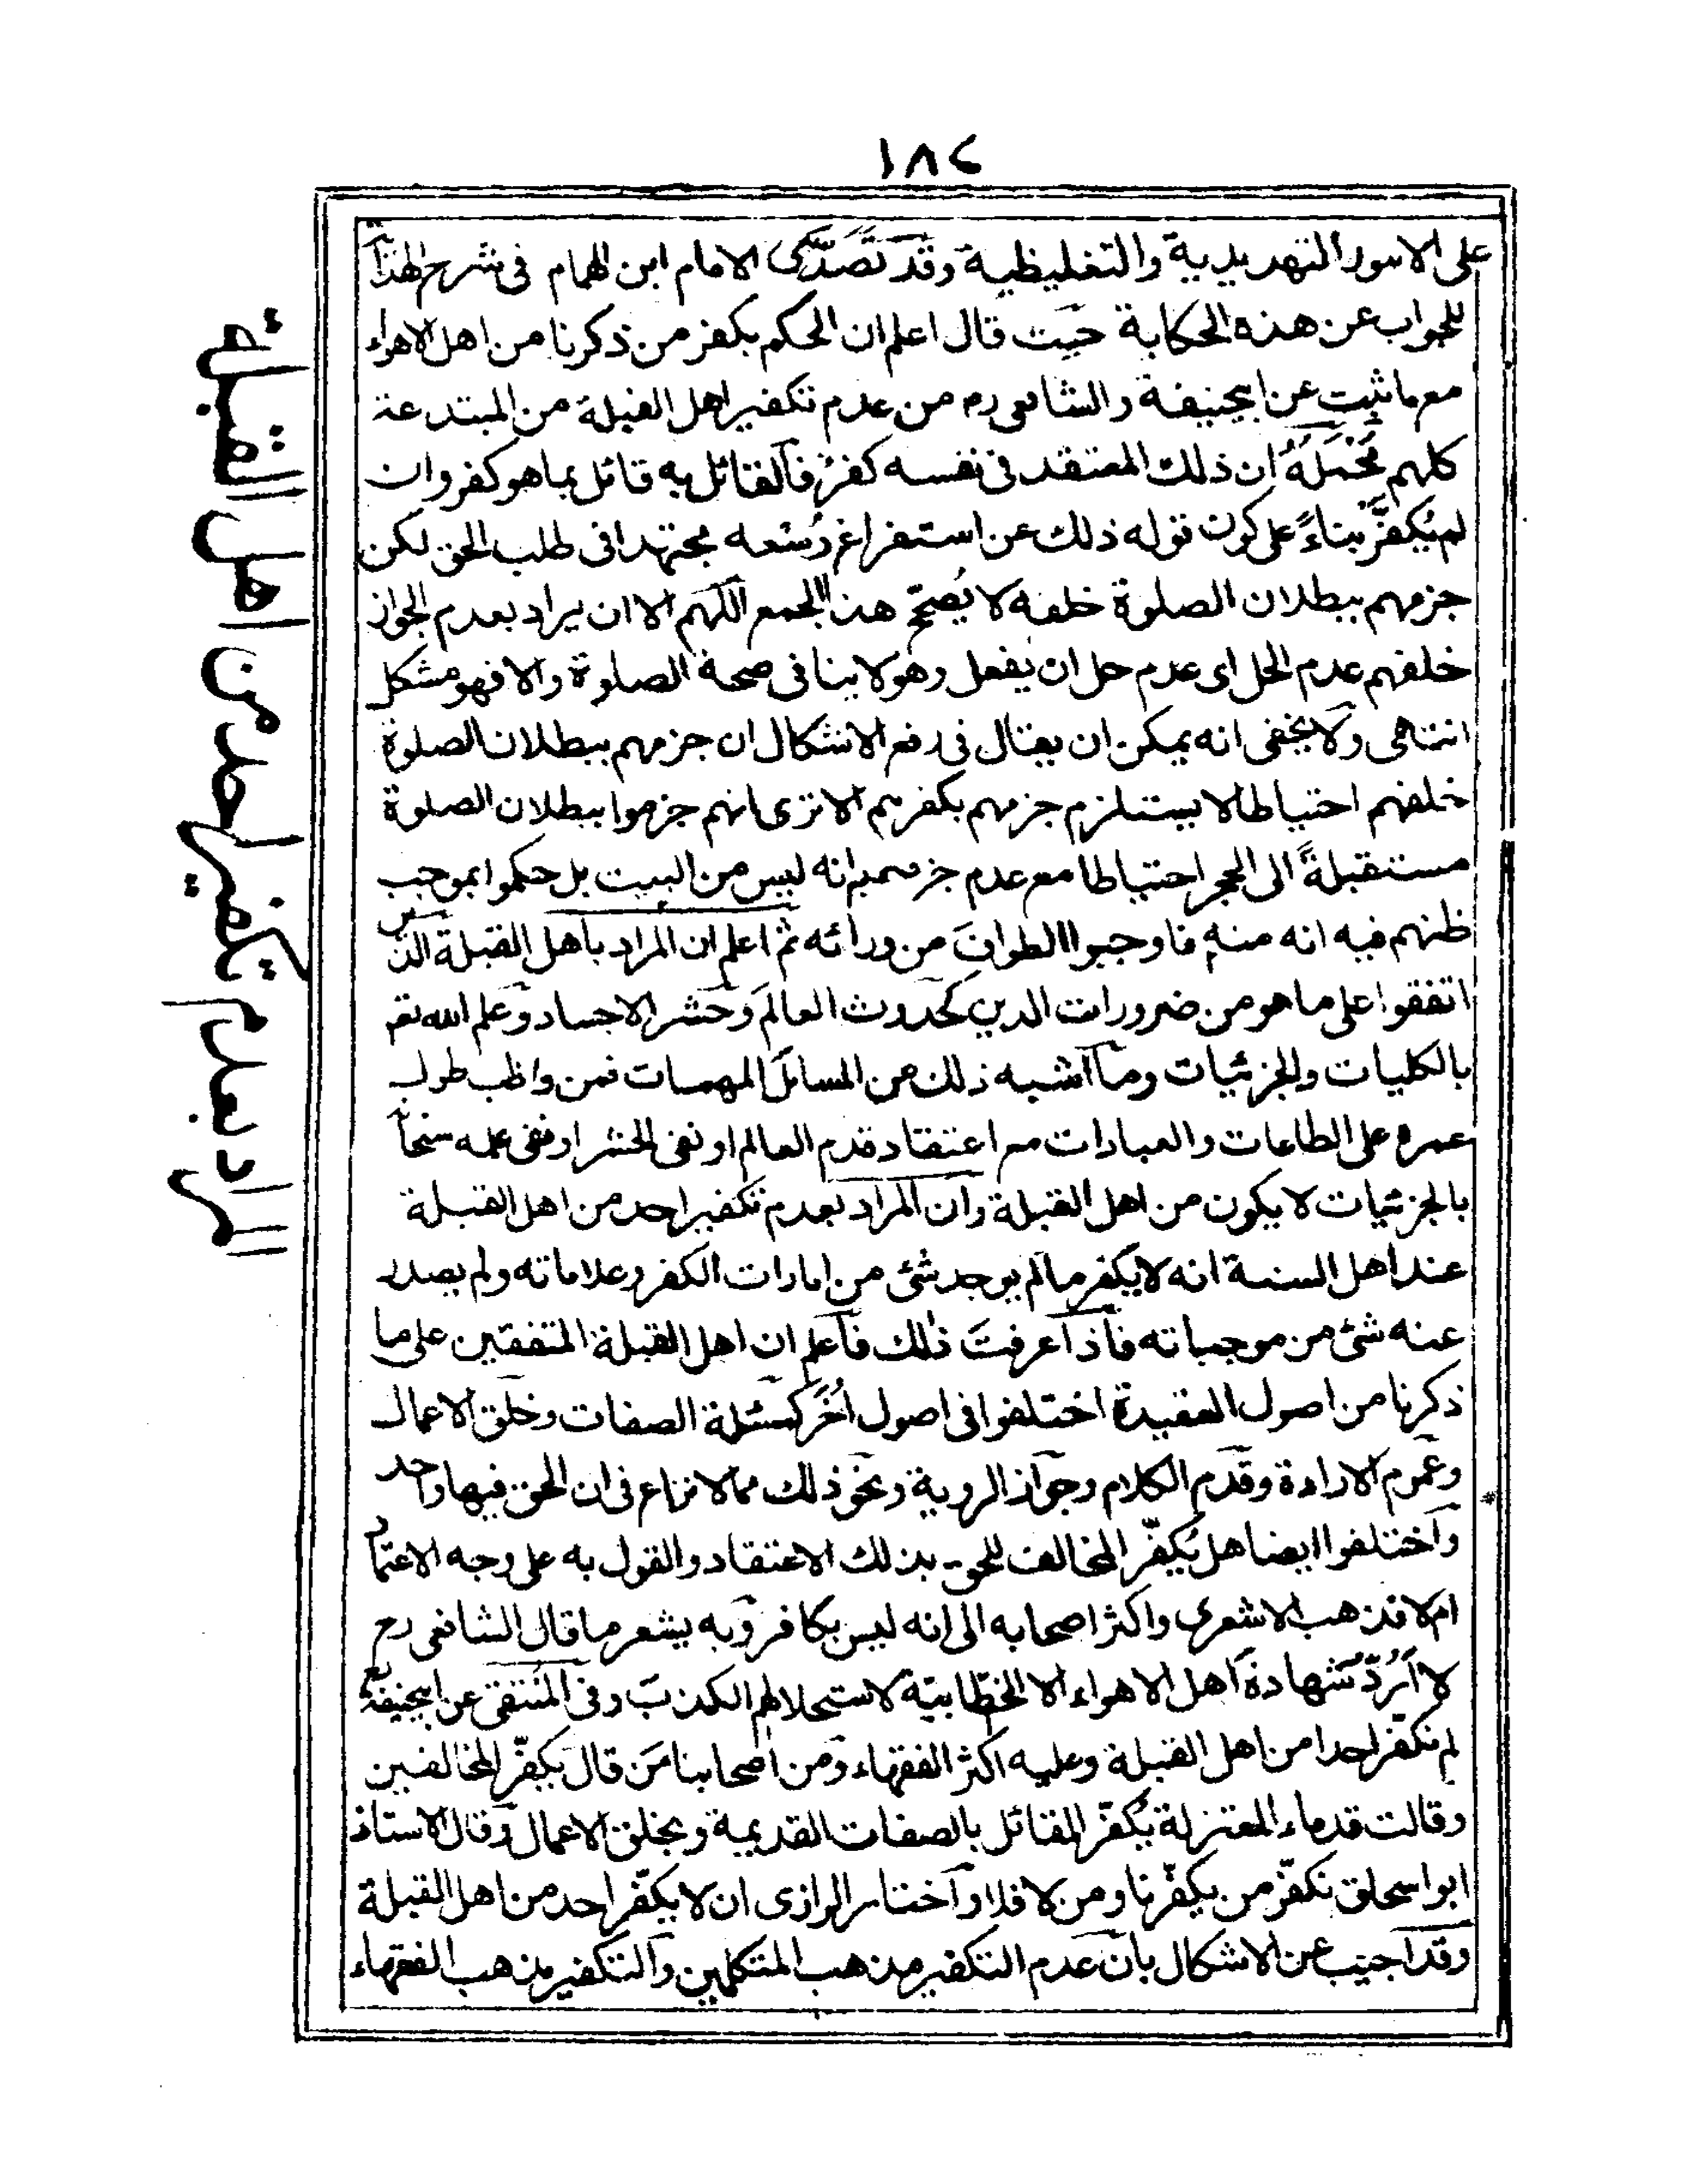 ١٨٤
على الامور التهديدية والتغليظية وقد تصدّى الامام ابن الهمام فى شرح الهداية
للجواب عن هذه الحكاية حيث قال اعلم ان الحكم بكفر من ذكرنا من اهل الاهواء
مع ما ثبت عن ابيحنيفة والشافعى رم من عدم تكفير اهل القبلة من المبتدعة
كلهم مَحْمَلُهُ ان ذلك المعتقد فى نفسه كفرٌ فالقائل به قائل بما هو كفر وان
لم يُكفَّر بناءً على كون قوله ذلك عن استفراغ وُسْعه مجتهدا فى طلب الحق لكن
جزمهم ببطلان الصلوة خلفه لا يُصَحِّح هذا الجمع اللهم الا ان يراد بعدم الجواز
خلفهم عدم الحل اى عدم حل ان يفعل وهو لا ينافى صحة الصلوة والا فهو مشكل
انتهى ولا يخفى انه يمكن ان يقال فى رفع الاشكال ان جزمهم ببطلان الصلوة
خلفهم احتياطا لا يستلزم جزمهم بكفرهم الا ترى انهم جزموا ببطلان الصلوة
مستقبلةً الى الحجر احتياطا مع عدم جزمهم بانه ليس من البيت بل حكموا بموجب
ظنهم فيه انه منه فاوجبوا الطوافَ من ورائه ثم اعلم ان المراد باهل القبلة الذين
اتفقوا على ما هو من ضرورات الدين كحدوث العالَم وحشر الاجساد وعلم الله تع
بالكليات والجزئيات وما اشبه ذلك من المسائل المهمات فمن واظب طول
عمره على الطاعات والعبادات مع اعتقاد قدم العالم او نفى الحشر او نفى علمه سبحانه
بالجزئيات لا يكون من اهل القبلة وان المراد بعدم تكفير احد من اهل القبلة
عند اهل السنة انه لا يكفر ما لم يوجد شئ من امارات الكفر وعلاماته ولم يصدر
عنه شئ من موجباته فاذا عرفتَ ذلك فاعلم ان اهل القبلة المتفقين على ما
ذكرنا من اصول العقيدة اختلفوا فى اصول اُخَر كمسئلة الصفات وخلق الاعمال
وعموم الارادة وقدم الكلام وجواز الروية ونحو ذلك مما لا نزاع فى ان الحق فيها واحد
واختلفوا ايضا هل يُكفَّر المخالف للحق بذلك الاعتقاد والقول به على وجه الاعتماد
ام لا فذهب الاشعرى واكثر اصحابه الى انه ليس بكافر وبه يشعر ما قال الشافعى رح
لا اَرُدُّ شهادة اهل الاهواء الا الخطّابيّة لاستحلالهم الكذب وفى المنتقى عن ابيحنيفة
لم نكفر احدا من اهل القبلة وعليه اكثر الفقهاء ومن اصحابنا مَن قال بكفر المخالفين
وقالت قدماء المعتزلة يُكفَّر القائل بالصفات القديمة وبخلق الاعمال وقال الاستاذ
ابو اسحاق نكفّر من يكفّرنا ومن لا فلا واختار الرازى ان لا يكفّر احد من اهل القبلة
وقد اجيب عن الاشكال بان عدم التكفير مذهب المتكلمين والتكفير مذهب الفقهاء
المراد بعدم تكفير احد من اهل القبلة